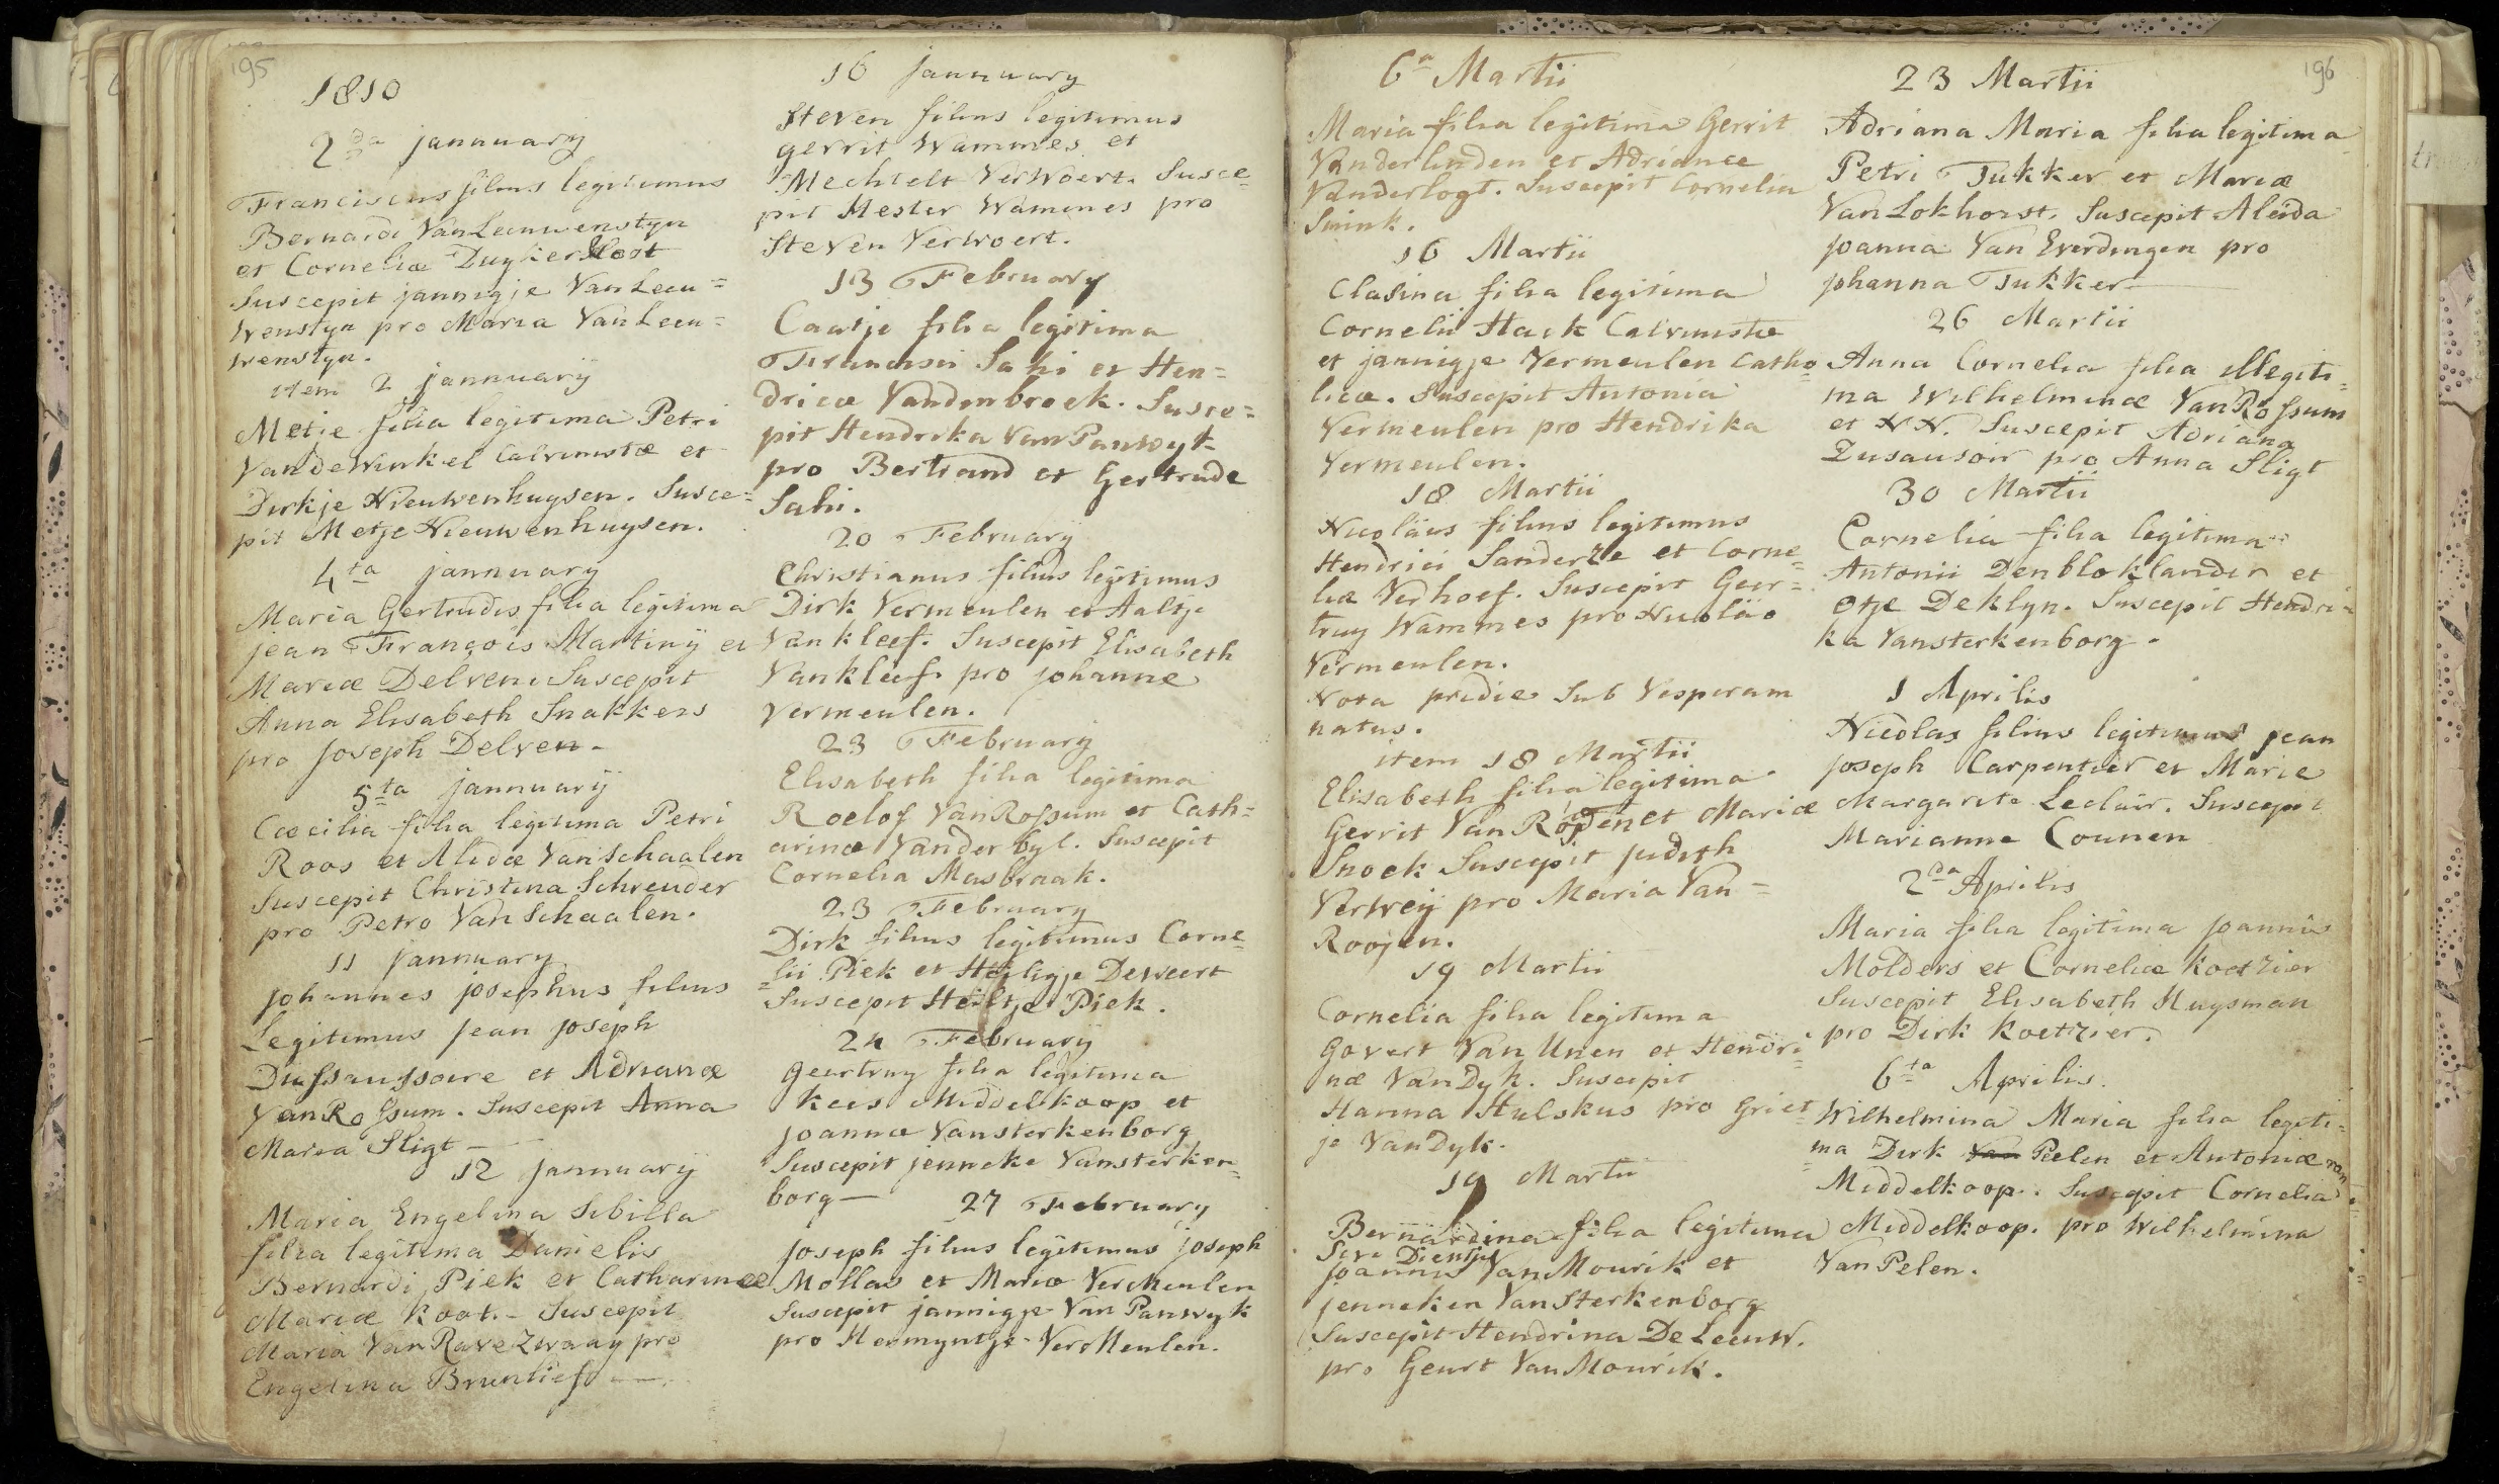 195
1810
2da jannuarij
Franciscus filius legitimus
Bernardi Van Leeuwenstyn
et Corneliæ Duykersloot
Suscepit jannigje Van Leeu=
wenstyn pro Maria Van Leeu=
wenstyn.
item 2 jannuarij
Metje filia legitima Petri
Van de Winkel Calvinistæ et
Dirkje Nieuwenhuysen. Susce=
pit Metje Nieuwenhuysen.
4ta jannuary
Maria Gertrudis filia legitima
jean François Martinÿ et
Mariæ Delven. Suscepit
Anna Elisabeth Snakkers
pro Joseph Delven-
5ta jannuarij
Cæcilia filia legitima Petri
Roos et Alidæ Van Schaalen
Suscepit Christina Schreuder
pro Petro Van Schaalen.
11 jannuary
Johannes josephus filius
Legitimus jean joseph
Dussaussoire et Adrianæ
Van Rossum. Suscepit Anna
Maria Sligt -
12 jannuarij
Maria Engelina Sibilla
filia legitima Danielis
Bernardi Piek et Catharinæ
Mariæ Koot. - Suscepit
Maria Van Ravezwaay pro
Engelina Bruntief
16 jannuary
Steven filius legitimus
gerrit Wammes et
Mechtelt Verwoert. Susce=
pit Hester Wammes pro
Steven Verwoert.
13 February
Caatje filia legitima
Francisci Sahi et Hen=
dricæ Vandenbroek. Susce=
pit Hendrika Van Panwyk
pro Bertrand et Gertrude
Sahi.
20 February
Christianus filius legitimus
Dirk Vermeulen et Aaltje
Vankleef. Suscepit Elisabeth
Vankleef pro johanne
Vermeulen.
23 February
Elisabeth filia legitima
Roelof Van Rossum et Cath=
arinæ Vander byl. Suscepit
Cornelia Masbraak.
23 February
Dirk filius legitimus Corne=
lii Piek et Heyligje Deweert
Suscepit Heiltje Piek.
24 February
Geertruy filia legitima
Kees Middelkoop et
joannæ Vansterkenborg
Suscepit jenneke Vansterken=
borg — 27 February
Joseph filius legitimus joseph
Mollas et Mariæ VerMeulen
Suscepit jannigje Van Panwyk
pro Hermyntje VerMeulen.
6a Martii
Maria filia legitima Gerrit
Vanderlinden et Adrianæ
Vanderlogt. Suscepit Cornelia
Smink.
16 Martii
Clasina filia legitima
Cornelii Hack Calvinistæ
et jannigje Vermeulen Catho=
licæ. Suscepit Antonia
Vermeulen pro Hendrika
Vermeulen.
18 Martii
Nicolaus filius legitimus
Hendrici Sanderze et Corne=
liæ Verhoef. Suscepit Geer=
truy Wammes pro Nicolao
Vermeulen.
Nota pridie Sub Vesperam
natus.
item 18 Martii
Elisabeth filia legitima
Gerrit Van Rojen et Mariæ
Snoek Suscepit judith
Verweij pro Maria Van=
Roojen.
19 Martii
Cornelia filia legitima
Govert Van Unen et Hendri=
næ Van Dyk. Suscepit
Hanna Hulskus pro Griet=
je Van Dyk.
19 Martii
Bernardina filia legitima
Sive Dientje
Joannis Van Mourik et
jenneken Van Sterkenborg
Suscepit Hendrina De Leeuw.
pro Geurt Van Mourik.
196
23 Martii
Adriana Maria filia legitima
Petri Tukker et Mariæ
Van Lokhorst. Suscepit Aleida
joanna Van Everdingen pro
johanna Tukker
26 Martii
Anna Cornelia filia illegiti=
ma Wilhelminæ Van Rossum
et N N. Suscepit Adriana
Dusausoir pro Anna Sligt
30 Martii
Cornelia filia legitima
Antonii Denbloklander et
Otje Deklyn. Suscepit Hendri=
ka Vansterkenborg.
1 Aprilis
Nicolas filius legitimus jean
joseph Carpentier et Marie
Margarite Leclair. Suscepit
Marianne Counen
2da Aprilis
Maria filia legitima Joannis
Molders et Corneliæ Koetzier
Suscepit Elisabeth Huysman
pro Dirk Koetzier.
6ta Aprilis.
Wilhelmina Maria filia legiti=
ma Dirk Van Peelen et Antoniæ van
Middelkoop. Suscepit Cornelia
Middelkoop. pro Wilhelmina
Van Pelen.